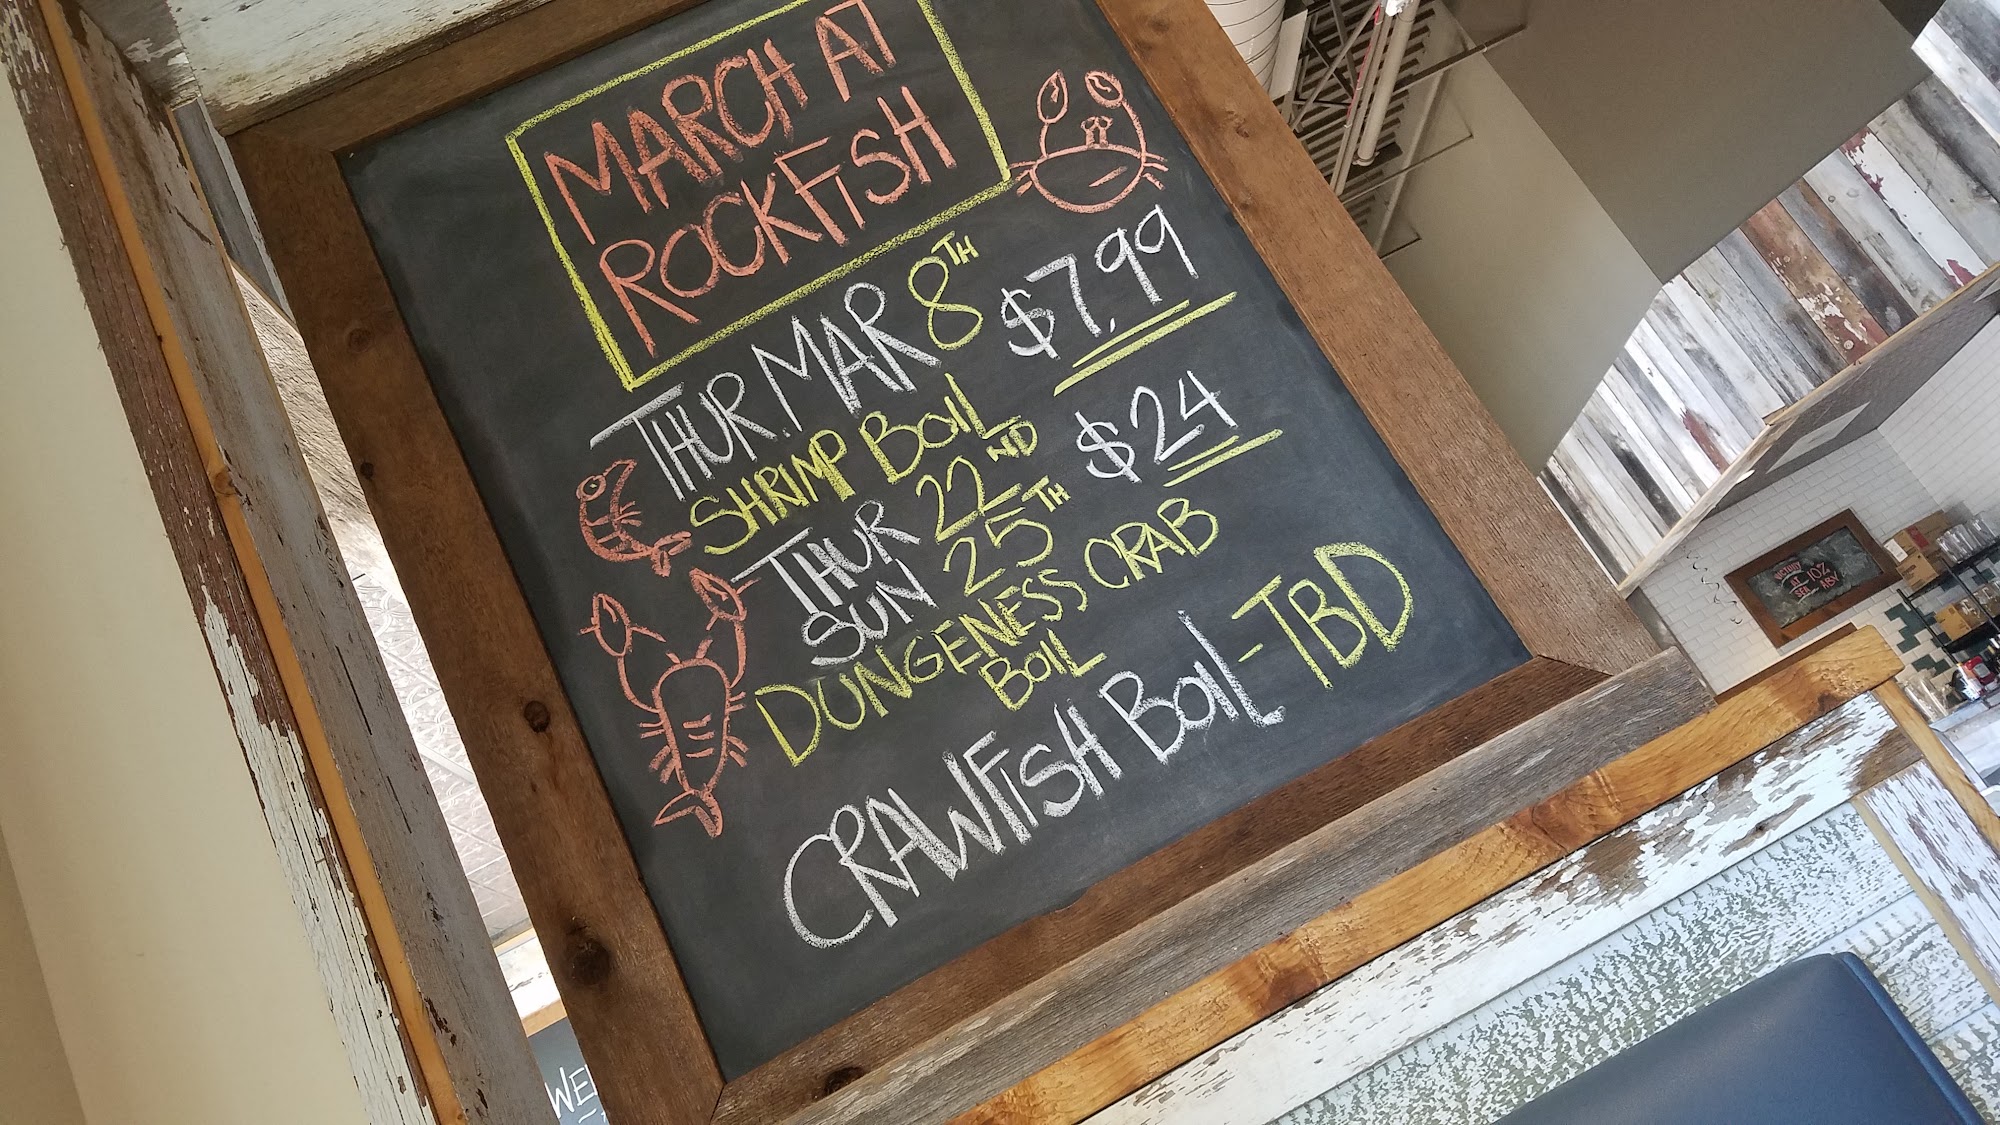 MARCH AT
ROCKFISH
THUR. MAR 8TH $7.99
SHRIMP BOIL
THUR 22ND $24
SUN 25TH
DUNGENESS CRAB
BOIL
CRAWFISH BOIL - TBD
10Z